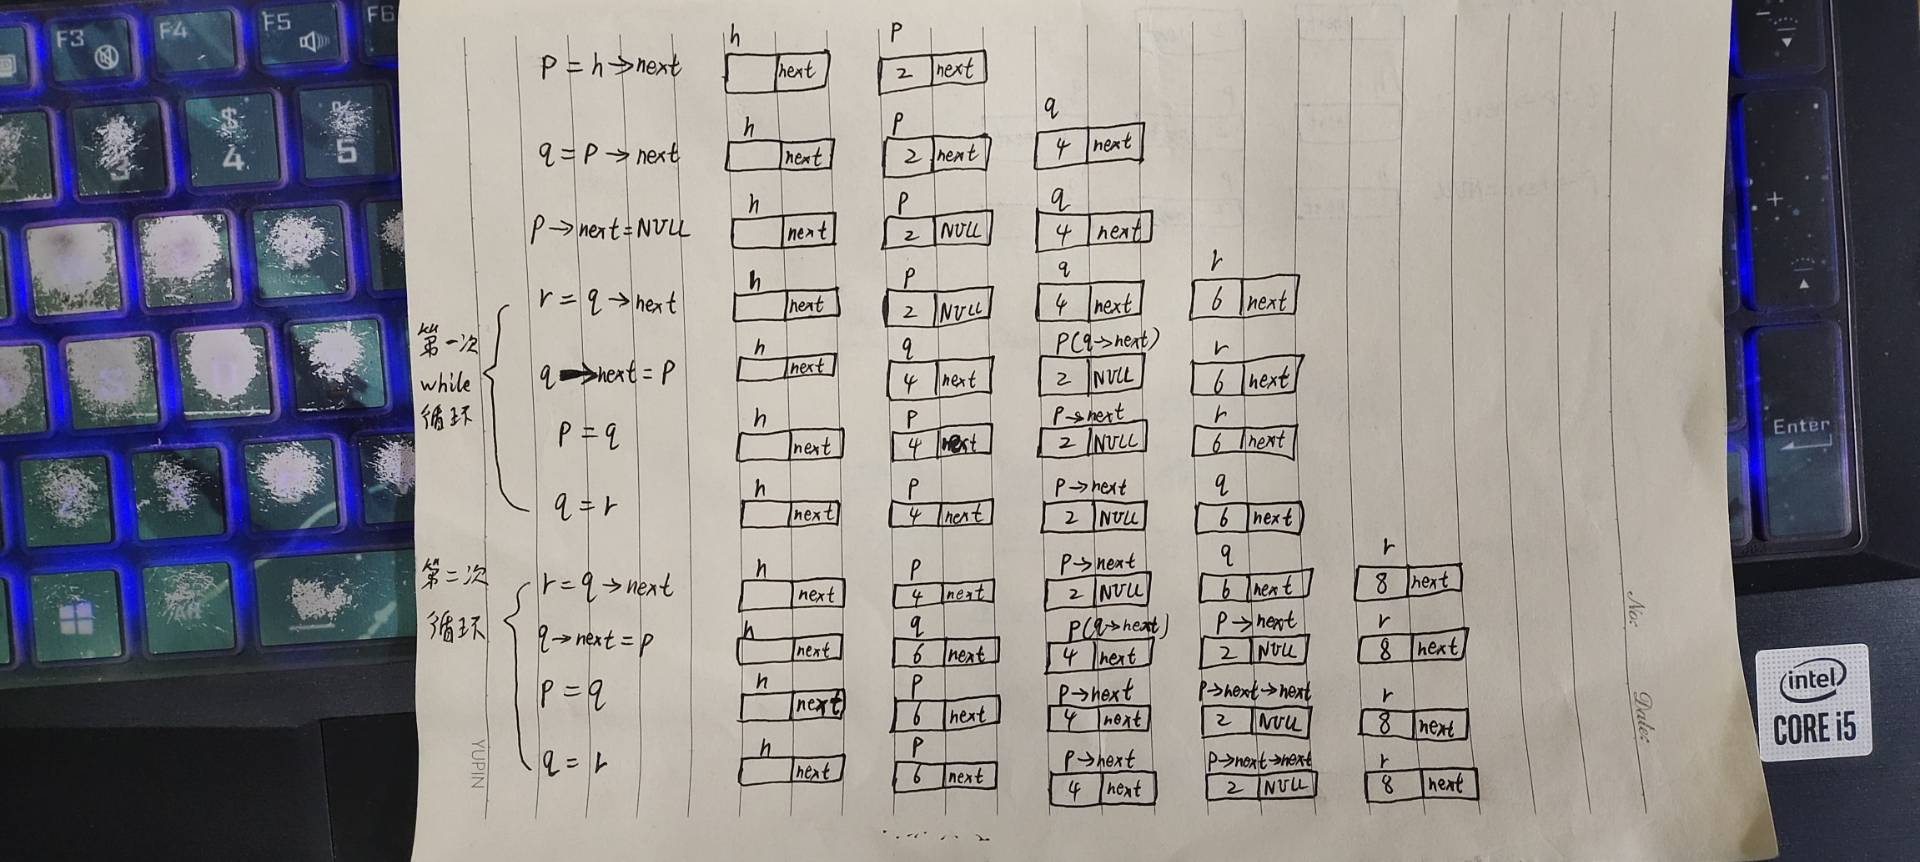 h P
P = h→next next 2 next
h P q
q = P→next next 2 next 4 next
h P q
P→next=NULL next 2 NULL 4 next
h P q r
r = q→next next 2 NULL 4 next 6 next
第一次
while
循环
h q P(q→next) r
q→next = P next 4 next 2 NULL 6 next
h P P→next r
P = q next 4 next 2 NULL 6 next
h P P→next q
q = r next 4 next 2 NULL 6 next
第二次
循环
h P P→next q r
r = q→next next 4 next 2 NULL 6 next 8 next
h q P(q→next) P→next r
q→next = P next 6 next 4 next 2 NULL 8 next
h P P→next P→next→next r
P = q next 6 next 4 next 2 NULL 8 next
h P P→next P→next→next r
q = r next 6 next 4 next 2 NULL 8 next
......
YUPIN
No:
Date:
F3
F4
F5
F6
$
4
%
5
3
Enter
+
intel
CORE i5